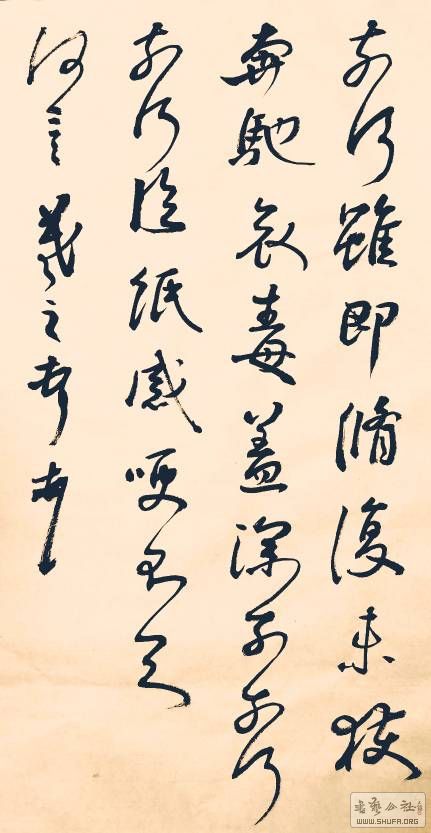 奈何雖即脩復未獲
奔馳哀毒益深奈何
奈何臨紙感哽不知
何言羲之頓首頓首
書藝公社
WWW.SHUFA.ORG